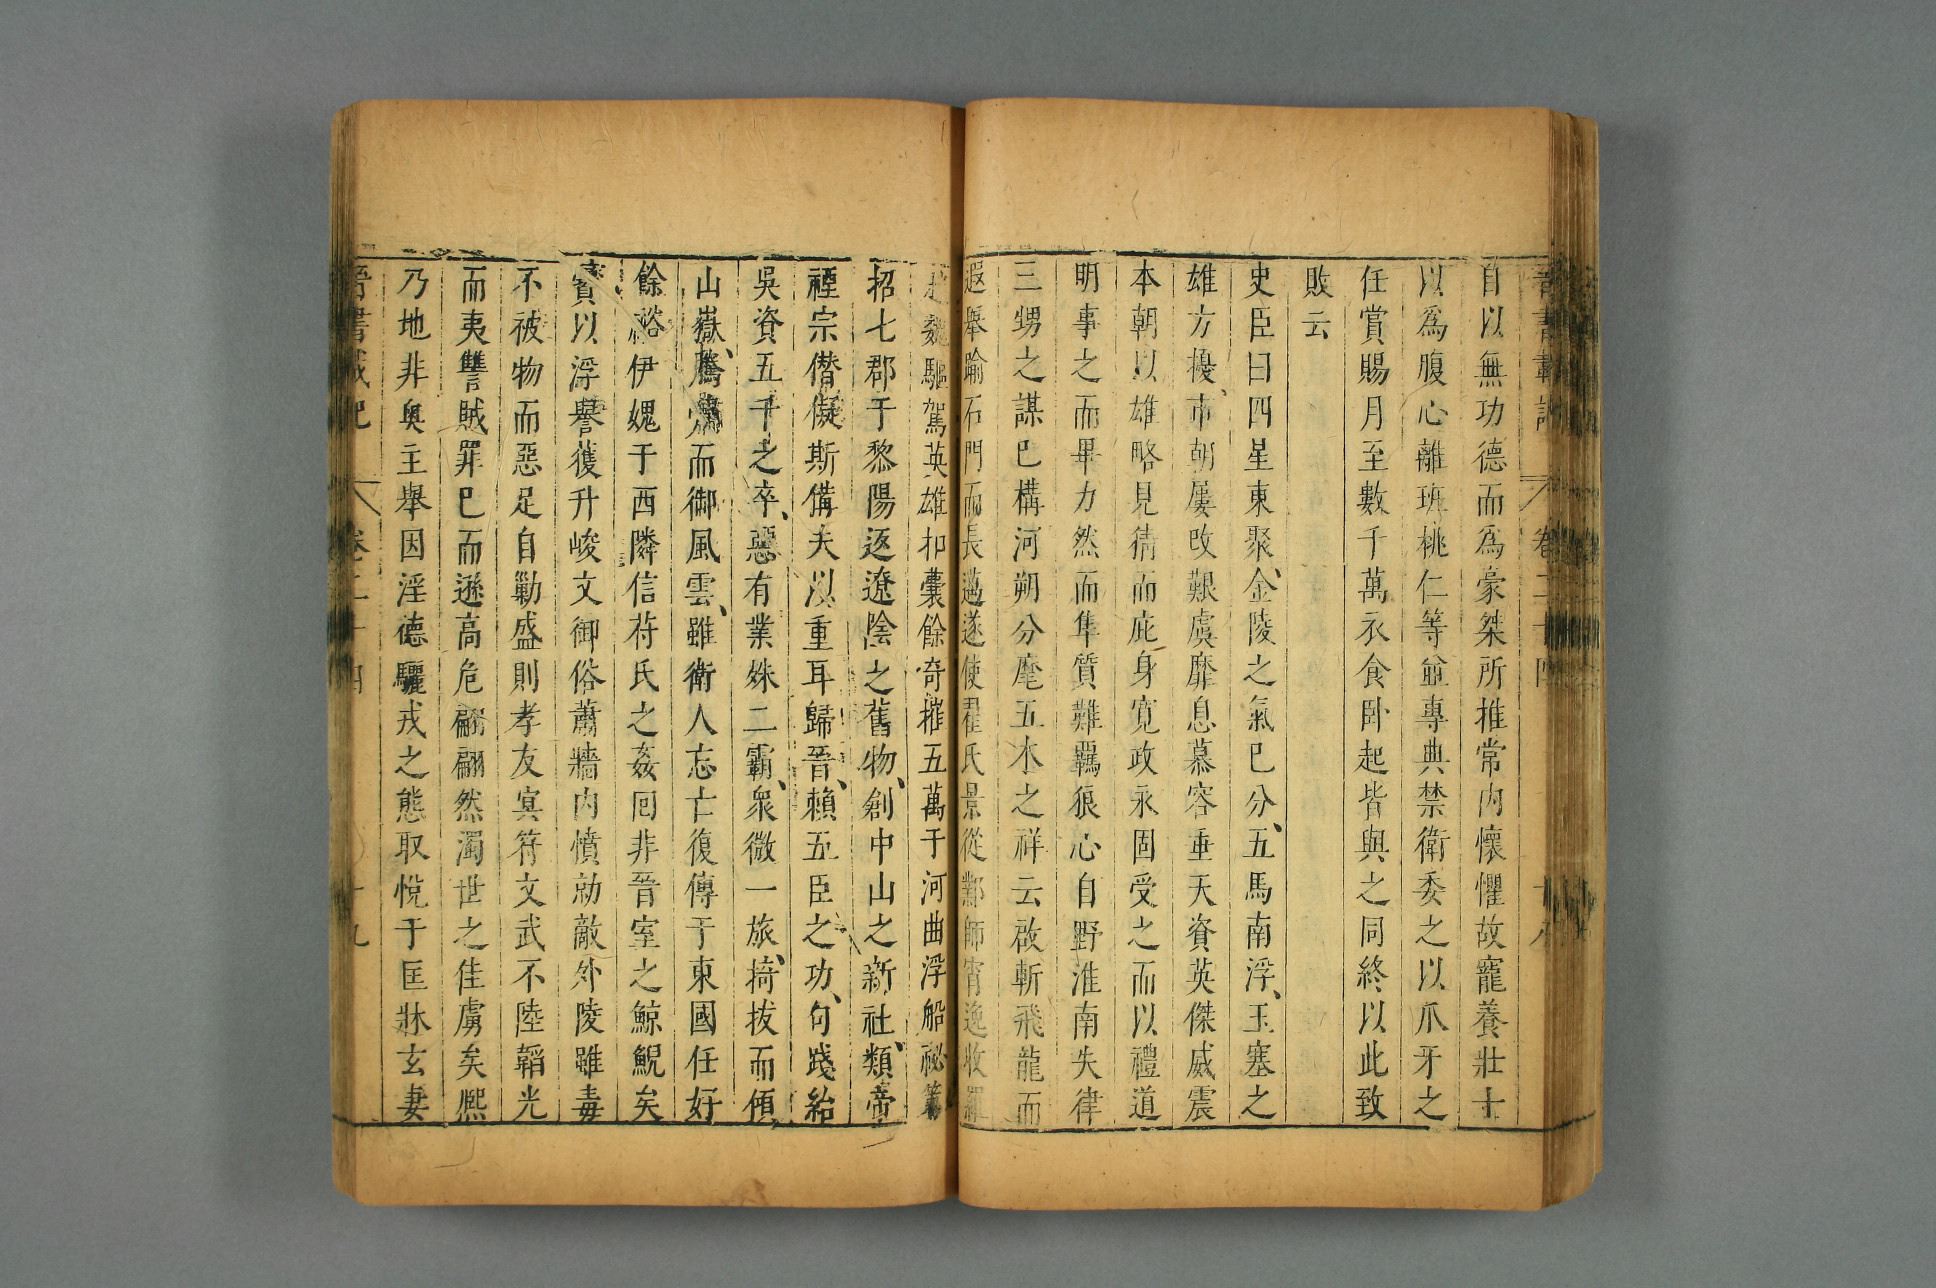 晉書載記
卷二十四
十八
自以無功德而爲豪桀所推常內懷懼故寵養壯士
以爲腹心離班桃仁等並專典禁衛委之以爪牙之
任賞賜月至數千萬衣食臥起皆與之同終以此致
敗云
史臣曰四星東聚金陵之氣已分五馬南浮玉塞之
雄方擾市朝屢改艱虞靡息慕容垂天資英傑威震
本朝以雄略見猜而庇身寬政永固受之而以禮道
明事之而畢力然而隼質難羈狼心自野淮南失律
三甥之謀已構河朔分麾五木之祥云啟斬飛龍而
遐舉踰石門而長邁遂使翟氏景從鄴師宵逸收羅
趙魏驅駕英雄扣囊餘奇摧五萬于河曲浮船祕策
招七郡于黎陽返遼陰之舊物創中山之新社類帝
禋宗僭儗斯備夫以重耳歸晉賴五臣之功句踐紿
吳資五千之卒惡有業殊二霸衆微一旅掎拔而傾
山嶽騰嘯而御風雲雖衛人忘亡復傳于東國任好
餘裕伊媿于西隣信苻氏之姦囘非晉室之鯨鯢矣
寶以浮譽獲升峻文御俗蕭牆內憤勍敵外陵雖毒
不被物而惡足自勦盛則孝友冥符文武不墜韜光
而夷讐賊罪已而遜高危翩翩然濁世之佳虜矣熙
乃地非奧主舉因淫德驪戎之態取悅于匡牀玄妻
晉書載記
卷二十四
十九